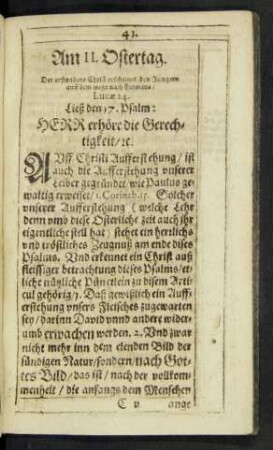 41.
Am II. Ostertag.
Der erstandene Christ erscheinet den Jüngern
auff dem wege nach Emmaus/
Lucæ 24.
Ließ den 17. Psalm:
HERR erhöre die Gerech-
tigkeit/ ꝛc.
AVff Christi Aufferstehung/ ist
auch die Aufferstehung vnserer
Leiber gegründet/ wie Paulus ge-
waltig erweiset/ 1. Corinth. 15. Solcher
vnserer Aufferstehung (welche Lehr
denn vmb diese Osterliche zeit auch jhr
eigentliche stell hat) stehet ein herrlichs
vnd tröstliches Zeugnuß am ende dises
Psalms. Vnd erkennet ein Christ auß
fleissiger betrachtung dieses Psalms/ et-
liche nützliche Pünctlein zu disem Arti-
cul gehörig/ 1. Daß gewißlich ein Auff-
erstehung vnsers Fleisches zugewarten
sey/ darinn David vnnd andere wider-
umb erwachen werden. 2. Vnd zwar
nicht mehr inn dem elenden Bild der
sündigen Natur/ sondern/ nach Got-
tes Bild/ das ist/ nach der vollkom-
menheit/ die anfangs dem Menschen
C v ange